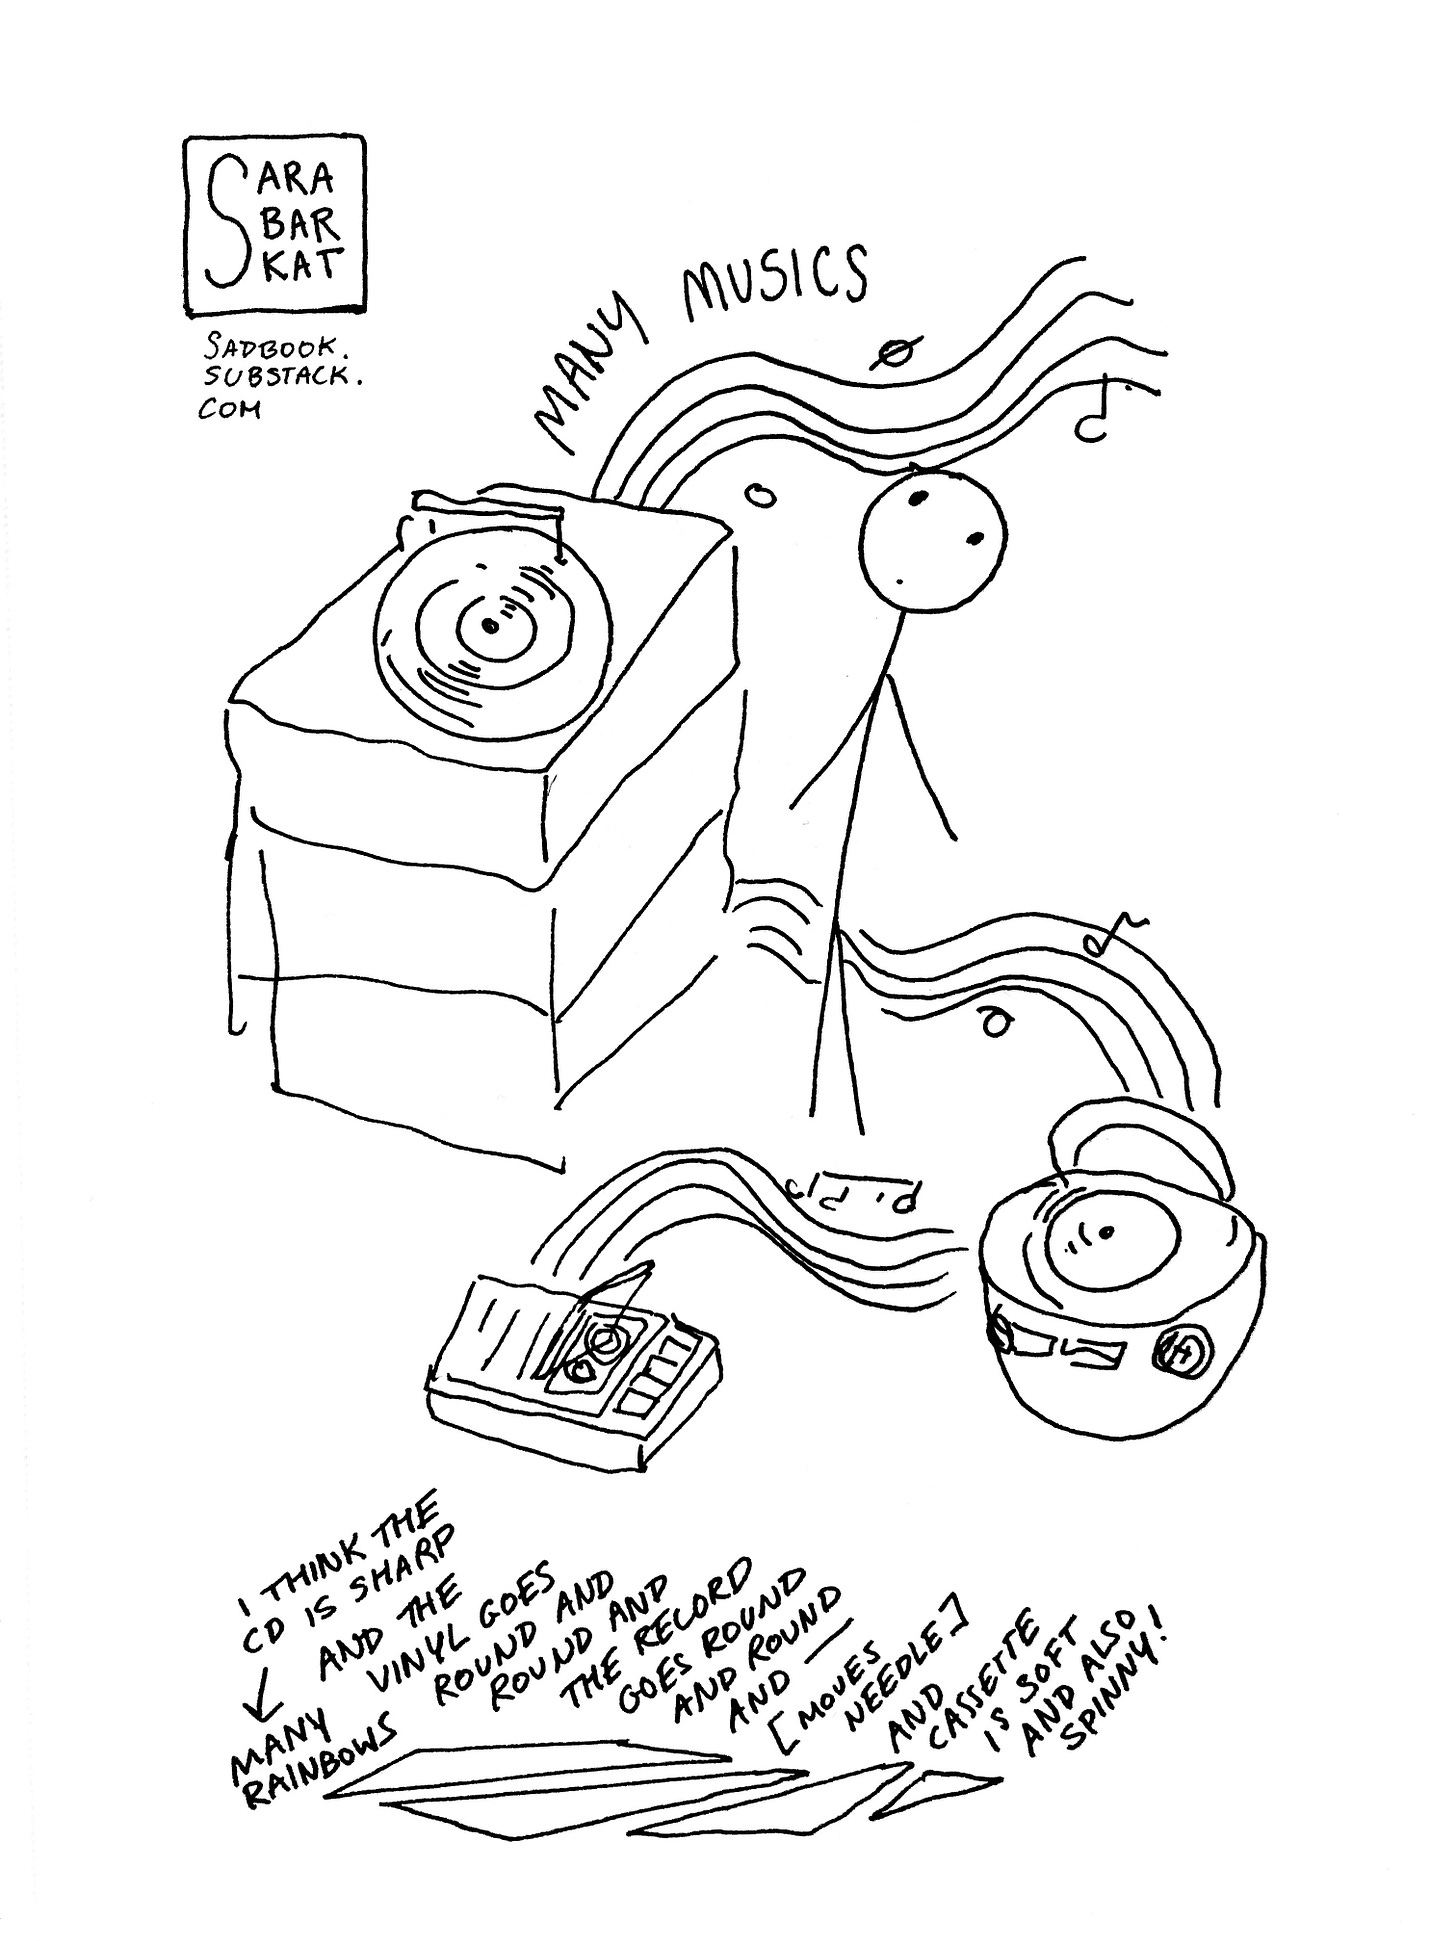 SARA
BAR
KAT
SADBOOK.
SUBSTACK.
COM
MANY MUSICS
I THINK THE
CD IS SHARP
AND THE
VINYL GOES
ROUND AND
ROUND AND
THE RECORD
GOES ROUND
AND ROUND
AND —
[MOVES
NEEDLE]
AND
CASSETTE
IS SOFT
AND ALSO
SPINNY!
MANY
RAINBOWS